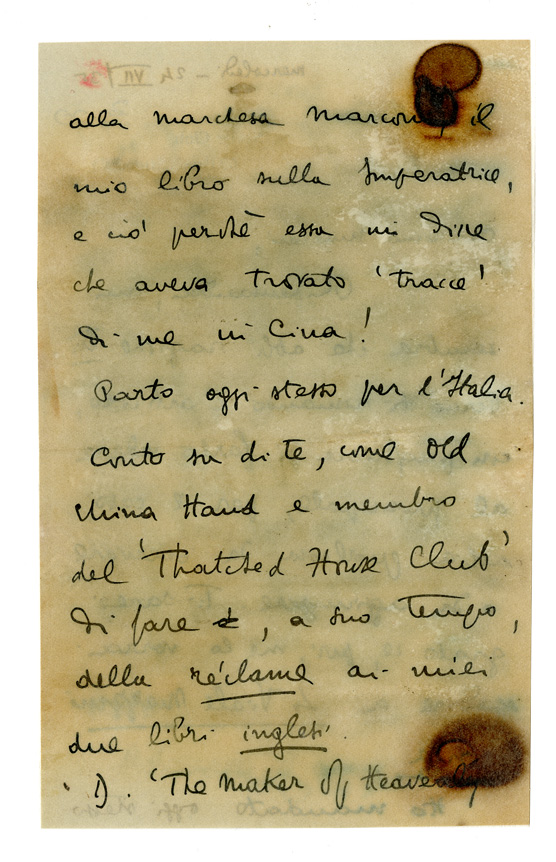 alla marchesa Marconi, il
mio libro sulla Imperatrice,
e ciò perchè essa mi disse
che aveva trovato 'tracce'
di me in Cina!
Parto oggi stesso per l'Italia.
Conto su di te, come Old
China Hand e membro
del 'Thatched House Club'
di fare , a suo tempo,
della réclame ai miei
due libri inglesi.
1). 'The Maker of Heavenly